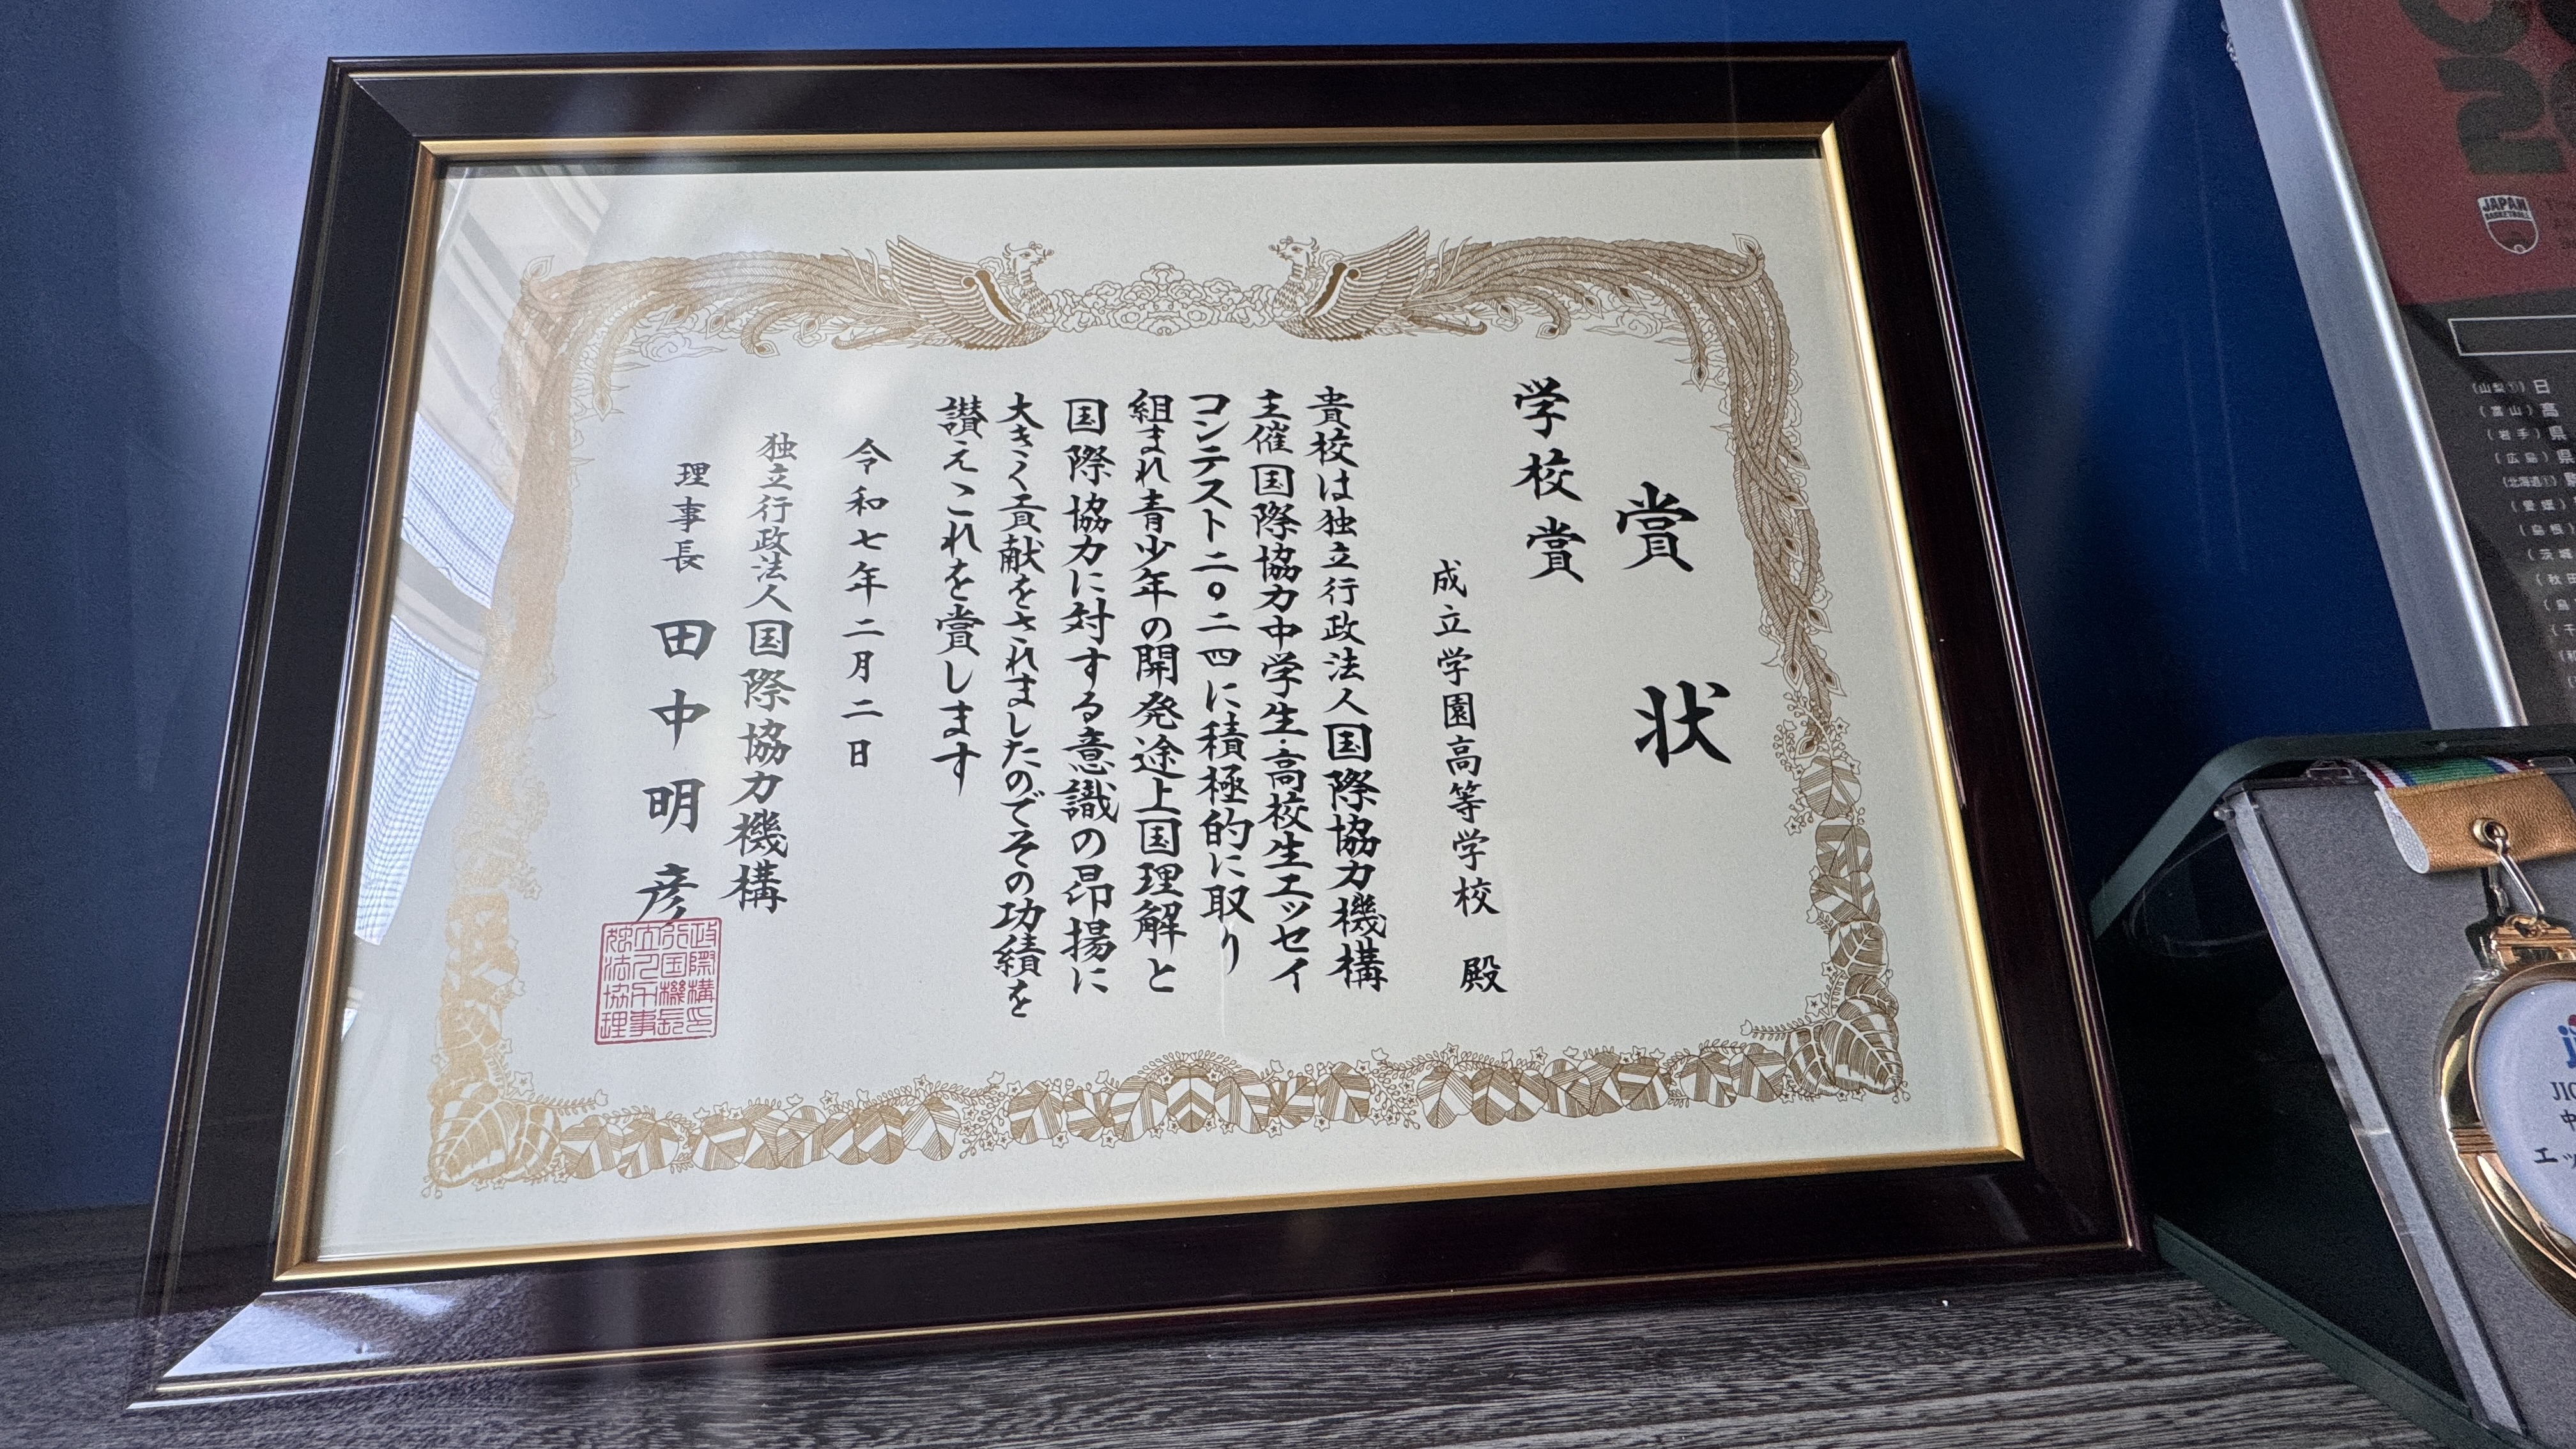 賞状
学校賞
成立学園高等学校 殿
貴校は独立行政法人国際協力機構
主催国際協力中学生・高校生エッセイ
コンテスト二〇二四に積極的に取り
組まれ青少年の開発途上国理解と
国際協力に対する意識の昂揚に
大きく貢献をされましたのでその功績を
讃えこれを賞します
令和七年二月二日
独立行政法人国際協力機構
理事長 田中明彦
JAPAN
BASKETBALL
(山梨①) 日
(富山) 高
(岩手) 県
(広島) 県
(北海道①)
(愛媛)
(島根)
(茨城
(秋田